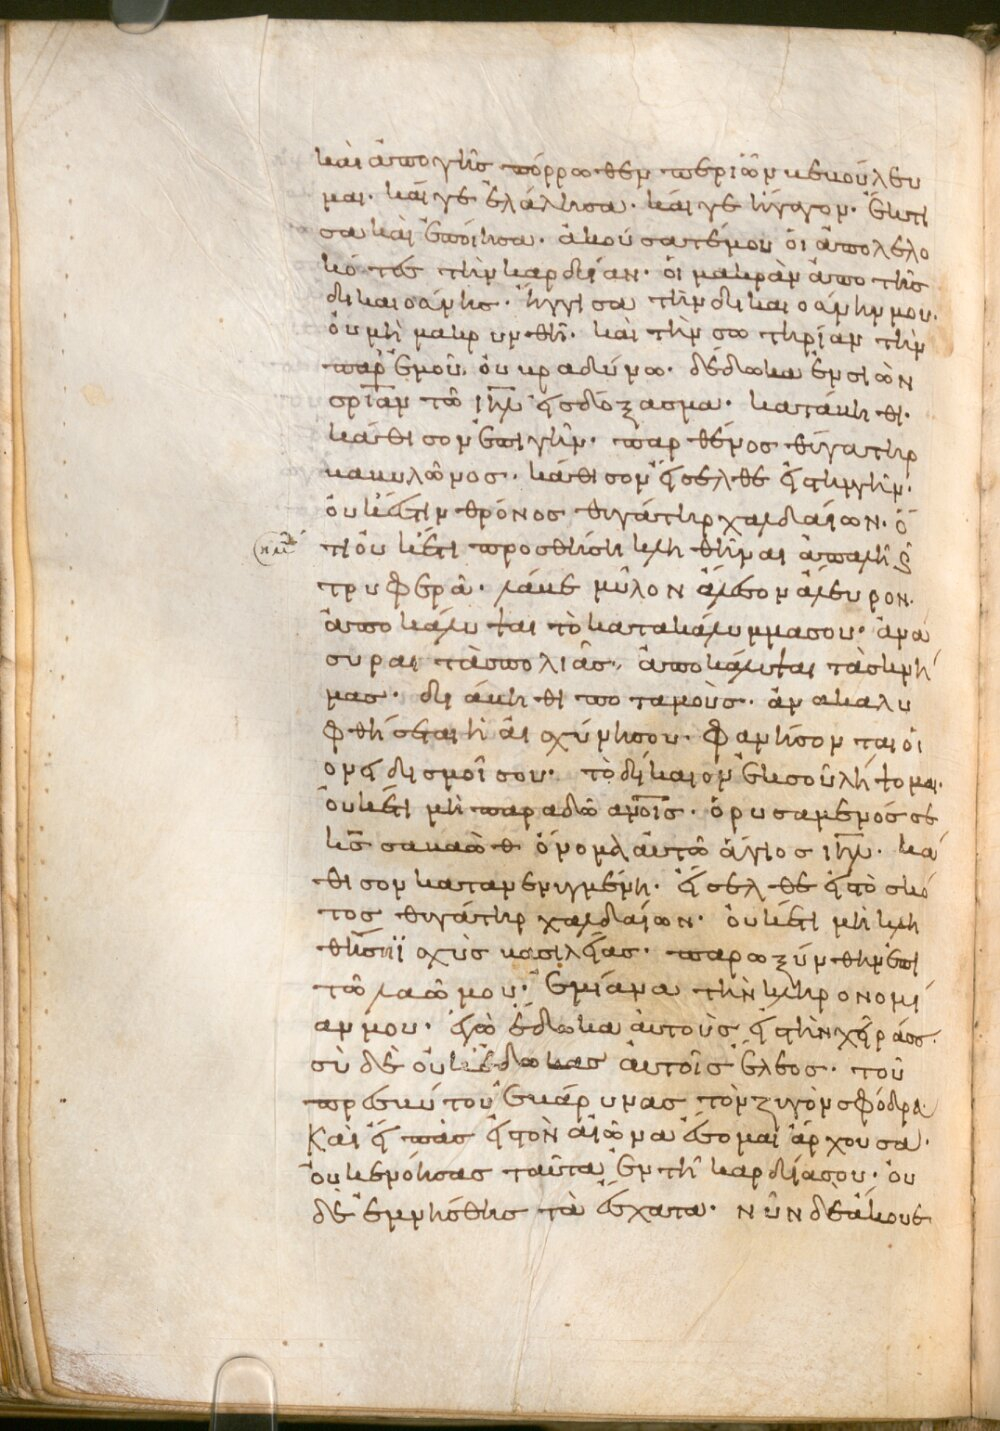 καὶ ἀπο γῆς πόρρωθεν περι ὧν βεβούλευ
μαι· καίγε ἐλάλησα· καίγε ἤγαγον· ἔκτι
σα καὶ ἐποίησα· ἀκούσατέ μου οἱ ἀπολελω
κότες τὴν καρδίαν· οἱ μακρὰν ἀπο τῆς
δικαιοσύνης· ἤγγισα τὴν δικαιοσύνην μου·
οὐ μὴ μακρυνθῆ· καὶ τὴν σωτηρίαν τὴν
παρ ἐμοῦ, οὐ βραδύνω· δέδωκα ἐν σιὼν
σρίαν τῶ ιηλ εἰς δόξασμα· κατάβηθι·
κάθισον ἐπι γῆν· παρθένος θύγατηρ
βαβυλῶνος· κάθισον εἴσελθε εἰς τὴν γῆν·
οὐκ ἔστιν θρόνος θυγάτηρ χαλδαίων· ὅ
τι οὐκέτι προσθήση κληθῆναι ἁπαλὴ ϗ
τρυφερά· λάβε μῦλον ἄλεσον ἄλευρον·
ἀποκάλυψαι τὸ κατακάλυμμα σου· ἀνα
συραι τὰς πολιάς· ἀποκάλυψαι τὰς κνή
μας· διάβηθι ποταμοὺς· ἀνακαλυ
φθήσεται ἡ αἰσχύνη σου· φανήσονται οἱ
ονειδισμοί σου· τὸ δίκαιον ἐκ σοῦ λήψομαι·
οὐκέτι μὴ παραδῶ ανοῖς· ὁ ρυσαμενός σε
κς σαβαὼθ ὄνομα αὐτῶ ἅγιος ιηλ· κά
θισον κατανενυγμένη· εἴσελθε εἰς τὸ σκό
τος θυγάτηρ χαλδαίων· οὐκέτι μὴ κλη
θήση ἰσχὺς βασιλείας· παρωξύνθην ἐπι
τῶ λαῶ μου· ἐμίανα τὴν κληρονομί
αν μου· ἐγὼ ἔδωκα αὐτοὺς εἰς τὴν χεῖρά σς·
σὺ δὲ οὐκ ἔδωκας αὐτοῖς ἔλεος· τοῦ
πρεσβύτου ἐβάρυνας τὸν ζυγὸν σφόδρα·
Καὶ εἶπας εἰς τὸν αἰῶνα ἔσομαι ἄρχουσα·
οὐκ ενόησας ταῦτα ἐν τῆ καρδία σου· οὐ
δὲ ἐμνήσθης τὰ ἔσχατα· νῦν δὲ ἄκουε